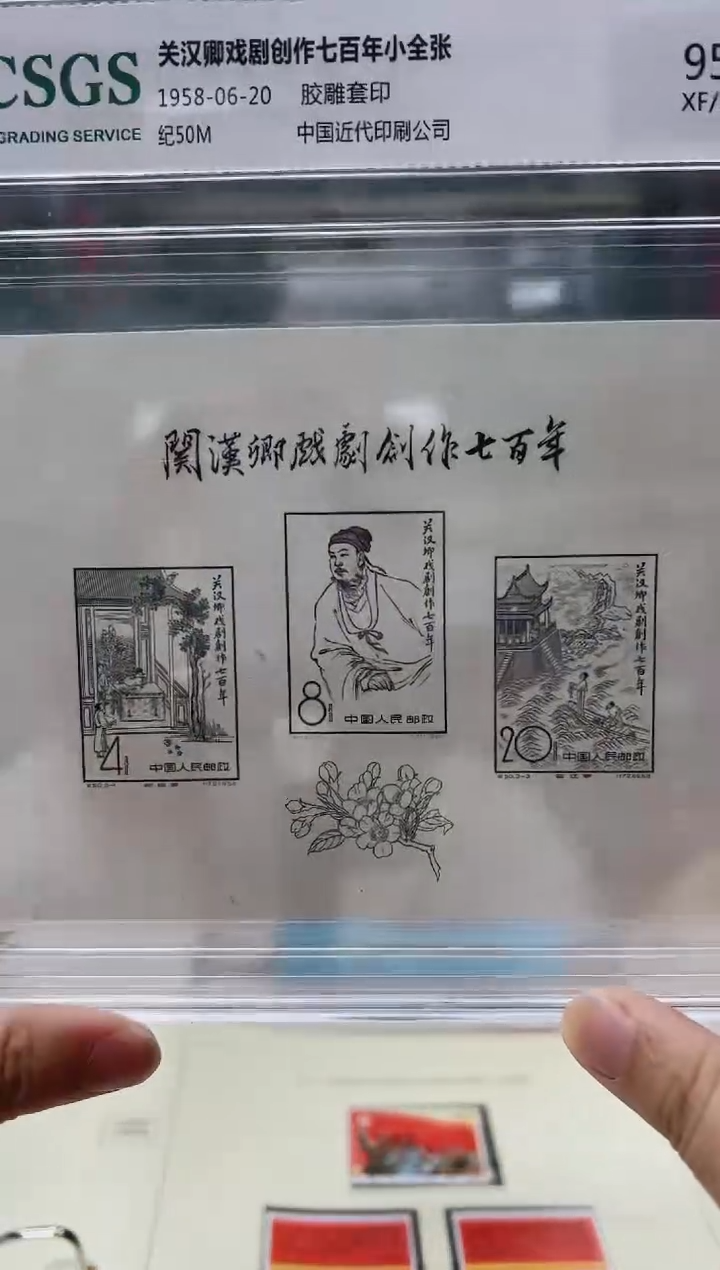 关汉卿戏剧创作七百年小全张
CSGS
1958-06-20 胶雕套印
GRADING SERVICE
纪50M 中国近代印刷公司
95
XF/
關漢卿戲劇創作七百年
关汉卿戏剧創作七百年
4
中国人民邮政
关汉卿戏剧創作七百年
8
中国人民邮政
关汉卿戏剧創作七百年
20
中国人民邮政